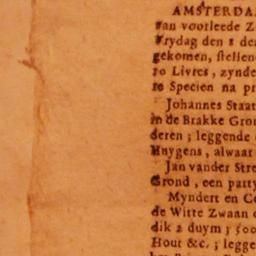 AMSTERDA
van voorleede Z
Vrydag den 1 de
gekomen, stellen
10 Livres, zynde
te Specien na pr
Johannes Staat
in de Brakke Gron
deren; leggende
Huygens, alwaar
Jan vander Stre
Grond, een party
Myndert en Co
de Witte Zwaan
dik 2 duym; 500
Hout &c.; legge